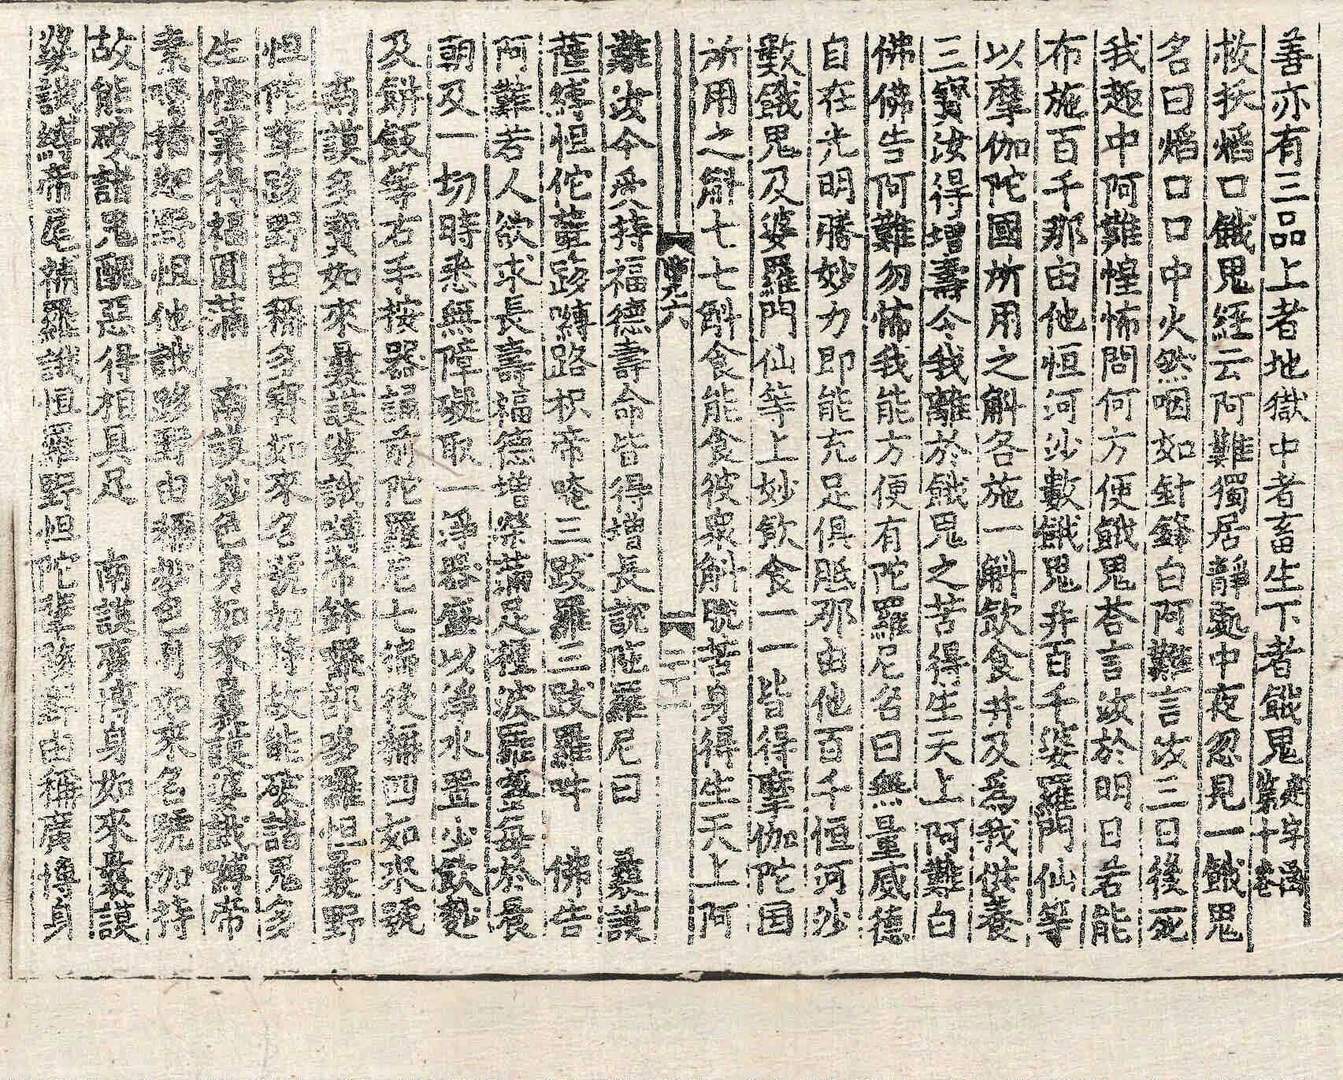 善亦有三品上者地獄中者畜生下者餓鬼
救拔焰口餓鬼經云阿難獨居靜處中夜忽見一餓鬼
名曰焰口口中火然咽如針鋒白阿難言汝三日後死
我趣中阿難惶怖問何方便餓鬼荅言汝於明日若能
布施百千那由他恒河沙數餓鬼并百千婆羅門仙等
以摩伽陀國所用之斛各施一斛飮食并及爲我供養
三寶汝得增壽令我離於餓鬼之苦得生天上阿難白
佛佛告阿難勿怖我能方便有陀羅尼名曰無量威德
自在光明勝妙力即能充足俱胝那由他百千恒河沙
數餓鬼及婆羅門仙等上妙飮食一一皆得摩伽陀国
所用之斛七七斛食能食彼衆斛脫苦身得生天上阿
難汝今受持福德壽命皆得增長說陀羅尼曰 曩謨
薩縛怛佗蘖路嚩路枳帝唵三跋羅三跋羅吽 佛告
阿難若人欲求長壽福德增榮滿足檀波羅蜜每於晨
朝及一切時悉無障礙取一淨器盛以淨水置少飮麨
及餠飯等右手按器誦前陀羅尼七徧後稱四如來號
南謨多寶如來曩謨婆誐嚩帝鉢囉部多羅怛曩野
怛陀蘖路野由稱多寶如來名號加持故能破諸鬼多
生慳業得福圓滿 南謨妙色身如來曩謨婆誐嚩帝
素嚕播野怛他誐路野由稱妙色身如來名號加持
故能破諸鬼醜惡得相具足 南謨廣博身如來曩謨
婆誐縛帝尾補羅誐怛羅野怛陀蘖路野由稱廣博身